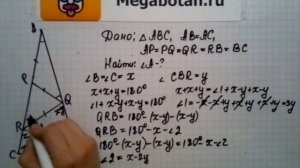 Megabotan.ru
Дано: △ABC, AB=AC,
AP=PQ=QR=RB=BC
Найти: ∠A-?
∠B=∠C=x
∠CBR=y
x+x+y=180°
x+x+y=∠1+x+x-y
∠1+x-y+x-y=180°
QRB=180°-(x-y)-(x-y)
QRB=180°-x-∠2
180°-(x-y)-(x-y)=180°-x-∠2
∠2=x-2y
P
Q
R
C